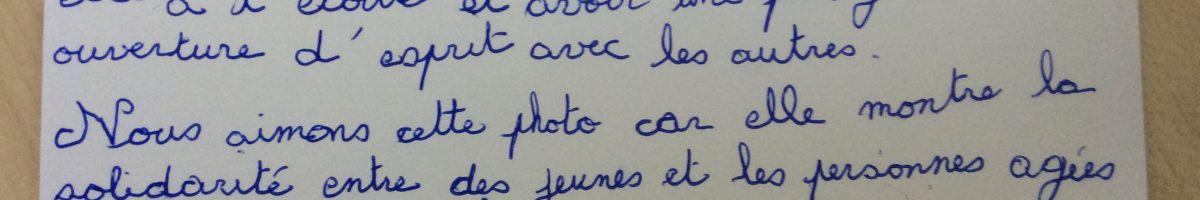 à l'école et avoir une
ouverture d'esprit avec les autres.
Nous aimons cette photo car elle montre la
solidarité entre des jeunes et les personnes agées